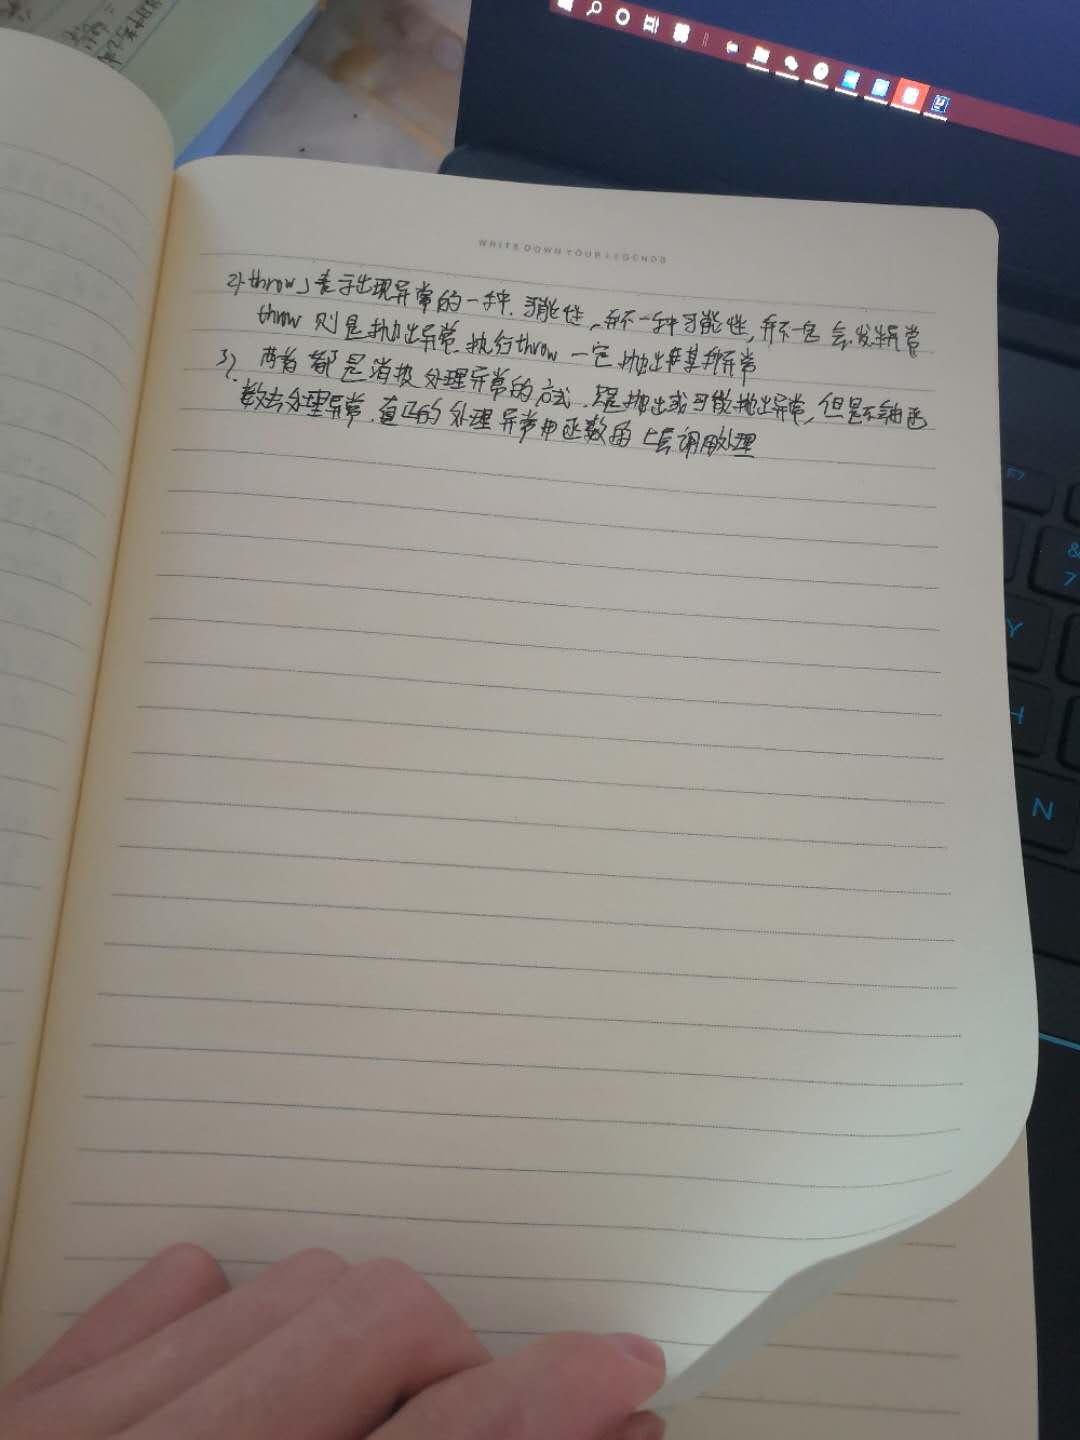 WRITE DOWN YOUR LEGENDS
2) throws 表示出现异常的一种可能性,并不一种可能性,并不一定会发生异常
throw 则是抛出异常.执行throw 一定抛出某种异常
3). 两者都是消极处理异常的方式.只是抛出或可能抛出异常,但是不由函
数去处理异常.真正的处理异常由函数的上层调用处理
F7
&
7
Y
H
N